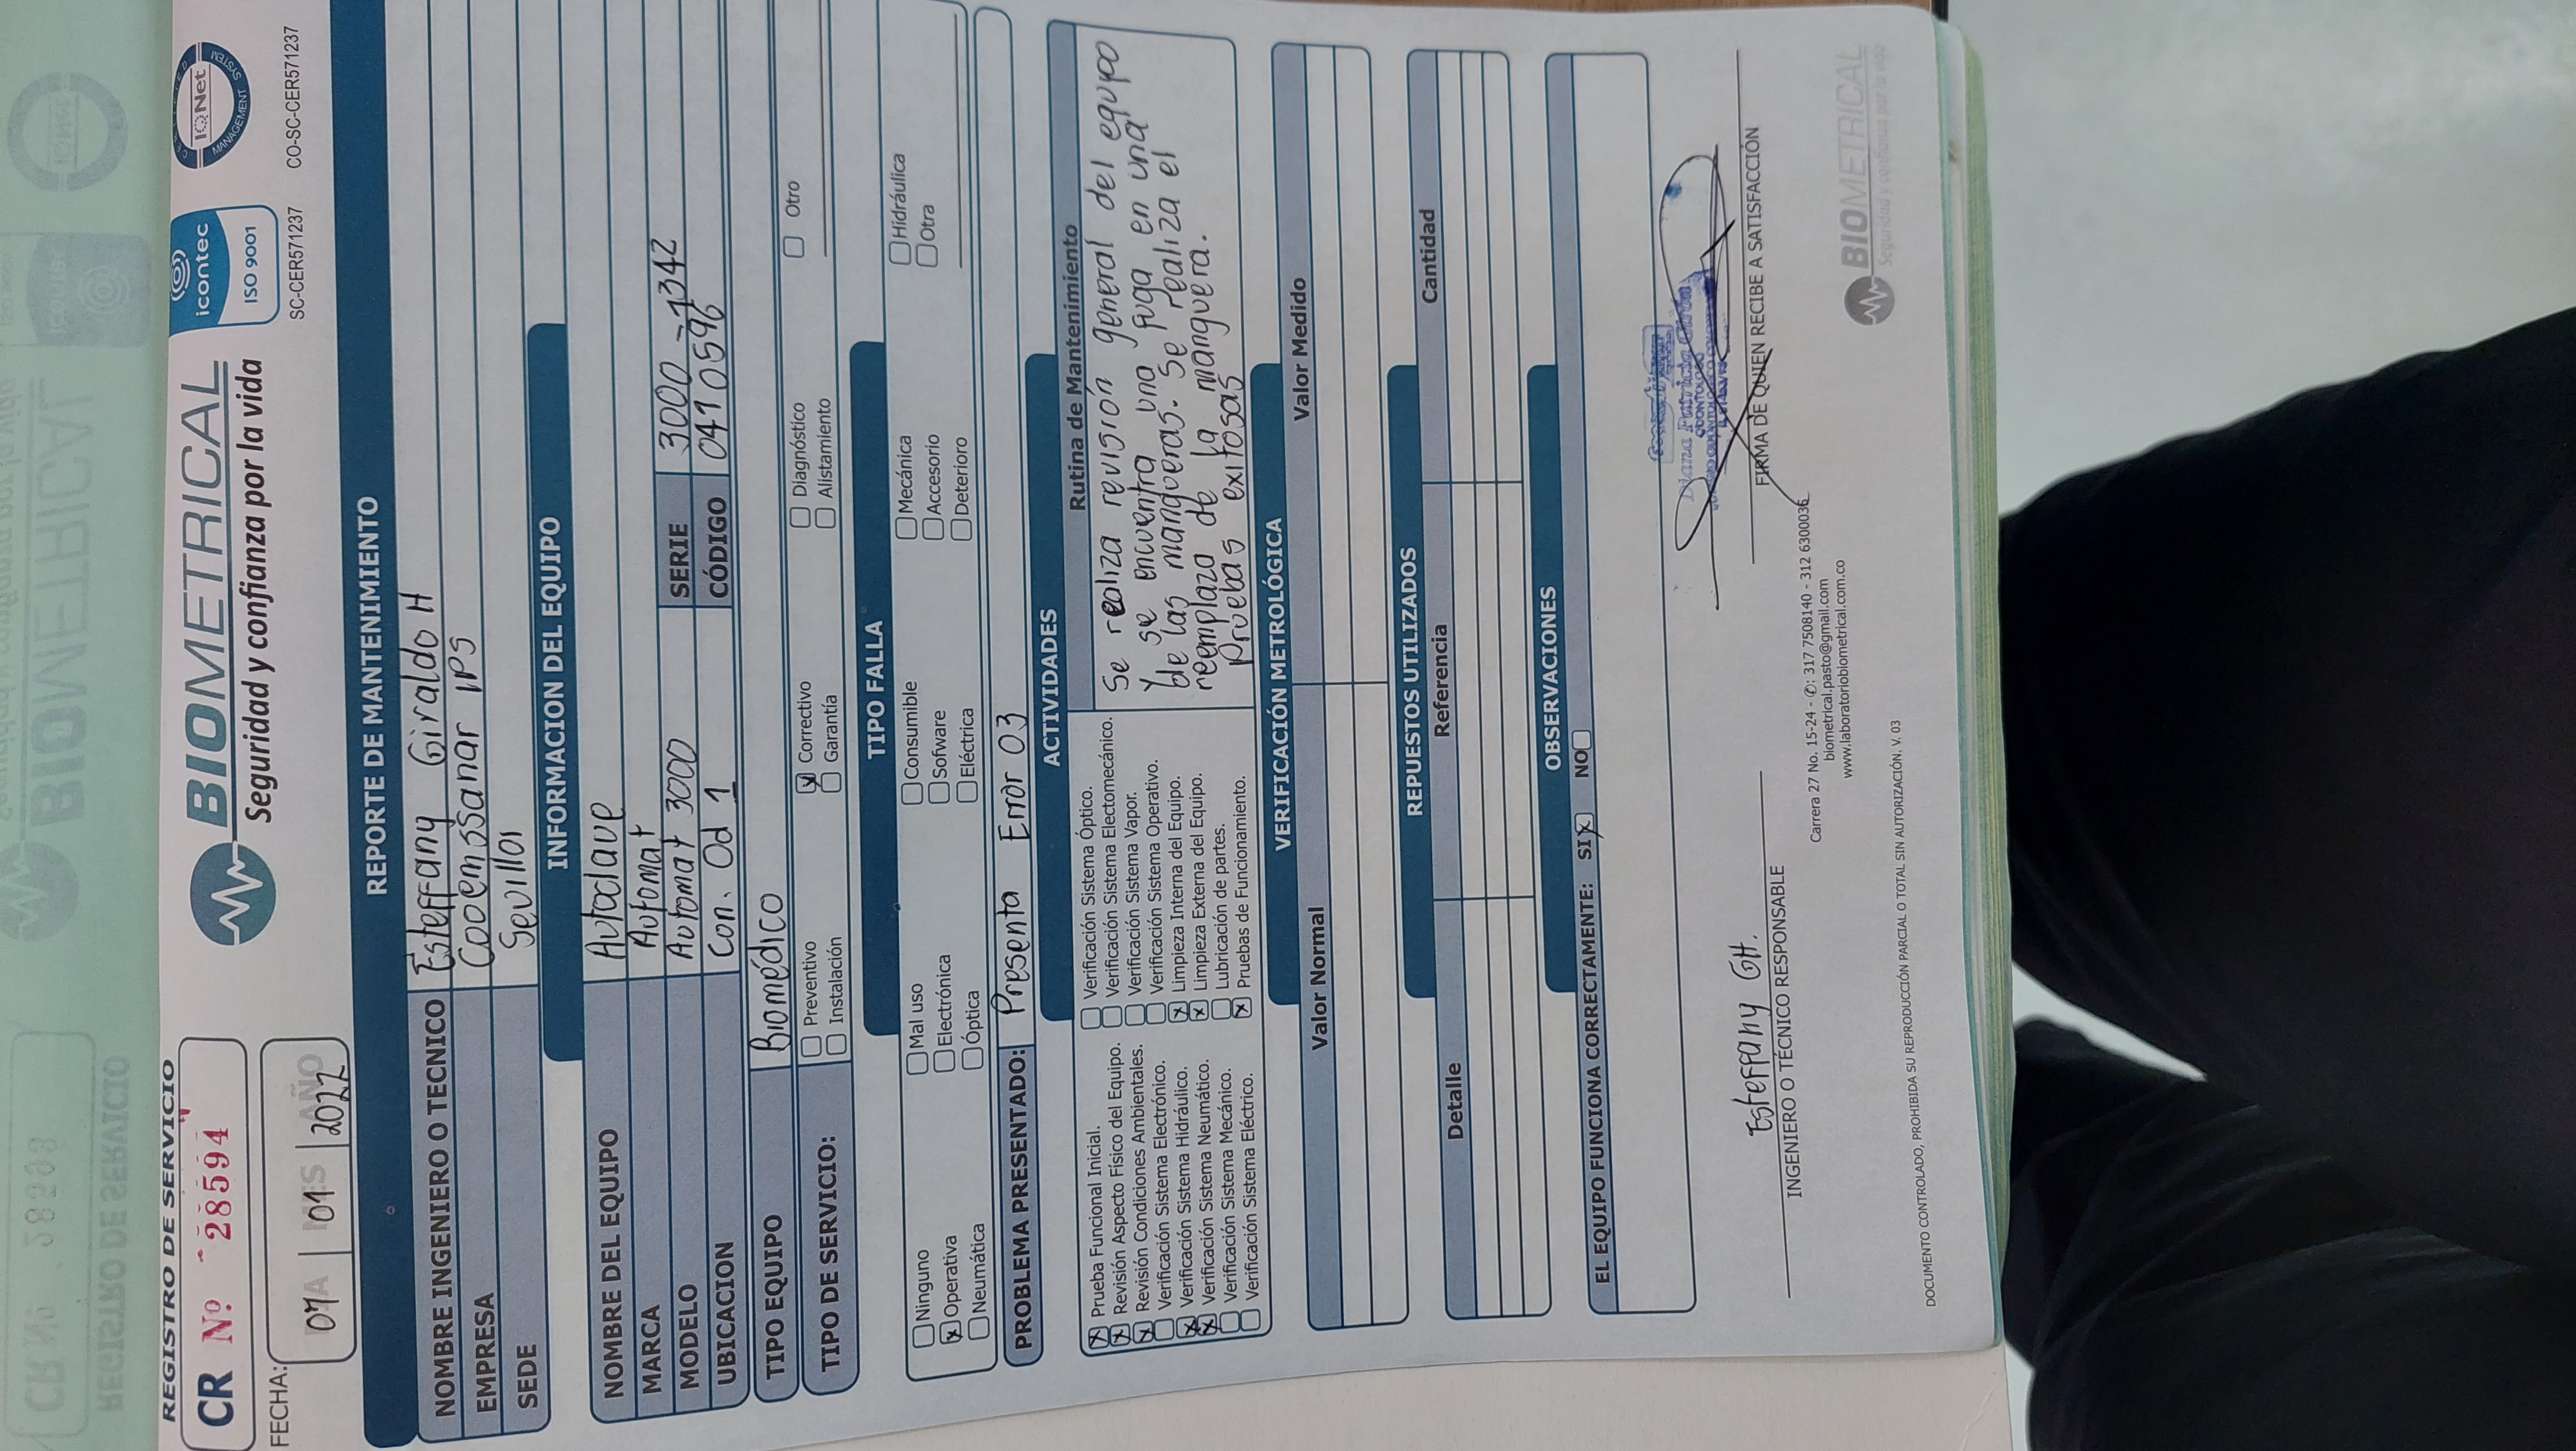 CR No 28593
REGISTRO DE SERVICIO
BIOMETRICAL
icontec
REGISTRO DE SERVICIO
CR Nº 28594
BIOMETRICAL
Seguridad y confianza por la vida
icontec
ISO 9001
SC-CER571237
CERTIFIED
IQNet
MANAGEMENT SYSTEM
CO-SC-CER571237
FECHA:
DIA MES AÑO
07 01 2022
REPORTE DE MANTENIMIENTO
NOMBRE INGENIERO O TECNICO Esteffany Giraldo H
EMPRESA Cooemssanar IPS
SEDE Sevilla
INFORMACION DEL EQUIPO
NOMBRE DEL EQUIPO Autoclave
MARCA Automat
MODELO Automat 3000 SERIE 3000-1342
UBICACION Con. Od 1 CÓDIGO 0410596
TIPO EQUIPO Biomédico
TIPO DE SERVICIO: Preventivo x Correctivo Diagnóstico Otro
Instalación Garantía Alistamiento
TIPO FALLA
Ninguno Mal uso Consumible Mecánica Hidráulica
x Operativa Electrónica Sofware Accesorio Otra
Neumática Óptica Eléctrica Deterioro
PROBLEMA PRESENTADO: Presenta Error 03
ACTIVIDADES
x Prueba Funcional Inicial.
x Revisión Aspecto Físico del Equipo.
x Revisión Condiciones Ambientales.
Verificación Sistema Electrónico.
x Verificación Sistema Hidráulico.
x Verificación Sistema Neumático.
Verificación Sistema Mecánico.
Verificación Sistema Eléctrico.
Verificación Sistema Óptico.
Verificación Sistema Electomecánico.
Verificación Sistema Vapor.
Verificación Sistema Operativo.
x Limpieza Interna del Equipo.
x Limpieza Externa del Equipo.
Lubricación de partes.
x Pruebas de Funcionamiento.
Rutina de Mantenimiento
Se realiza revisión general del equipo
y se encuentra una fuga en una
de las mangueras. Se realiza el
reemplazo de la manguera.
Pruebas exitosas
VERIFICACIÓN METROLÓGICA
Valor Normal Valor Medido
REPUESTOS UTILIZADOS
Detalle Referencia Cantidad
OBSERVACIONES
EL EQUIPO FUNCIONA CORRECTAMENTE: SI x NO
Diana Patricia Girón
ODONTOLOGO
Esteffany GH.
INGENIERO O TÉCNICO RESPONSABLE
FIRMA DE QUIEN RECIBE A SATISFACCIÓN
Carrera 27 No. 15-24 - ✆: 317 7508140 - 312 6300036
biometrical.pasto@gmail.com
www.laboratoriobiometrical.com.co
BIOMETRICAL
Seguridad y confianza por la vida
DOCUMENTO CONTROLADO, PROHIBIDA SU REPRODUCCIÓN PARCIAL O TOTAL SIN AUTORIZACIÓN. V. 03